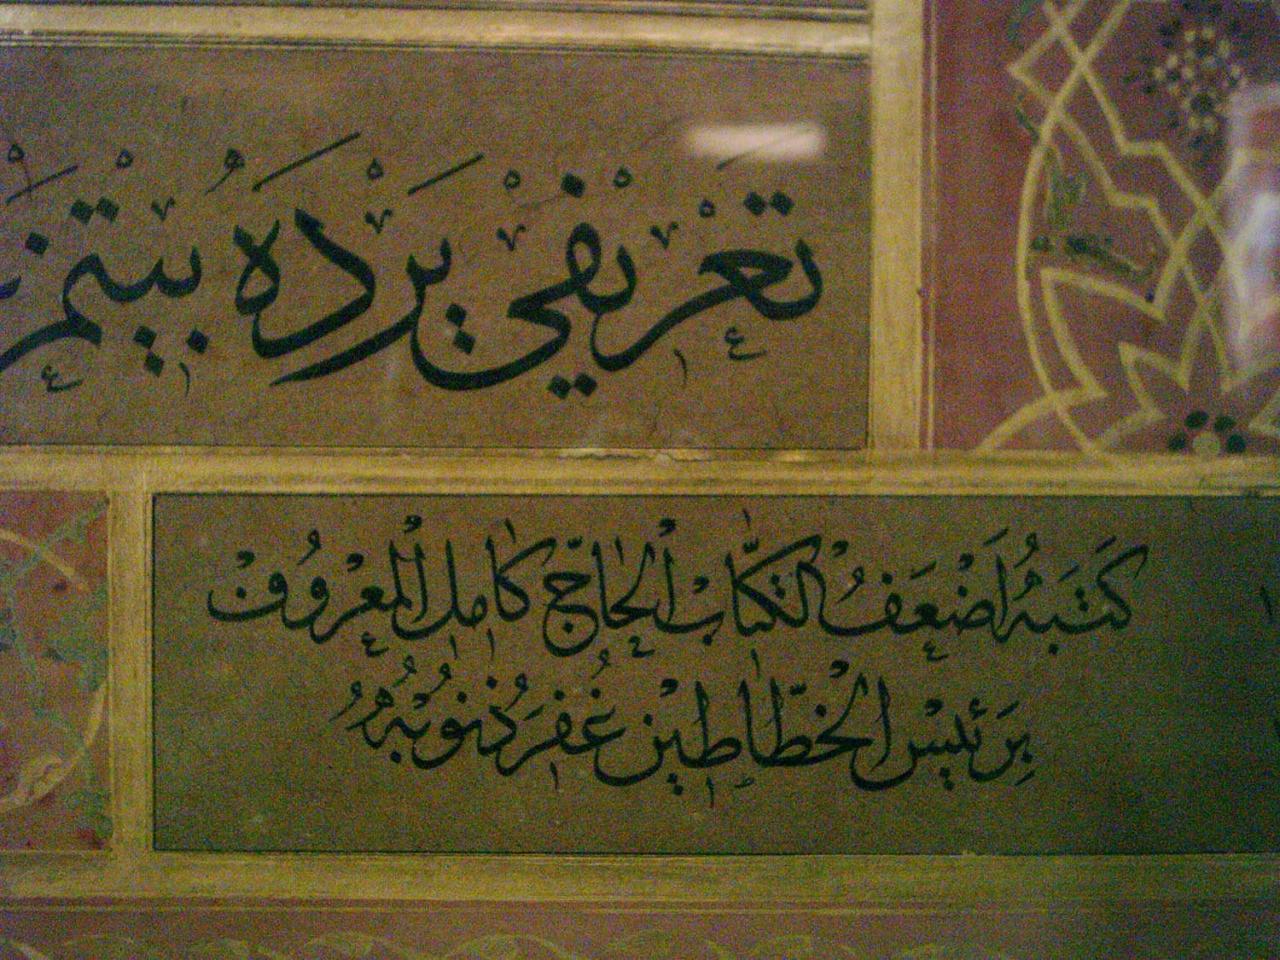 تَعْرِيفِي يَرْدَهُ بِيْتْمَز
كَتَبَهُ أَضْعَفُ الْكُتَّابْ اَلْحَاجّ كَامِل اَلْمَعْرُوفْ
بِرَئِيسْ الْخَطَّاطِينْ غُفِرَ ذُنُوبُهُ